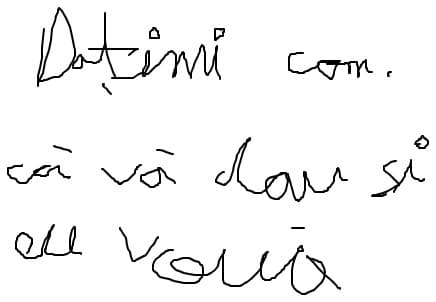 Dațimi com.
că vă dau si
eu vouă